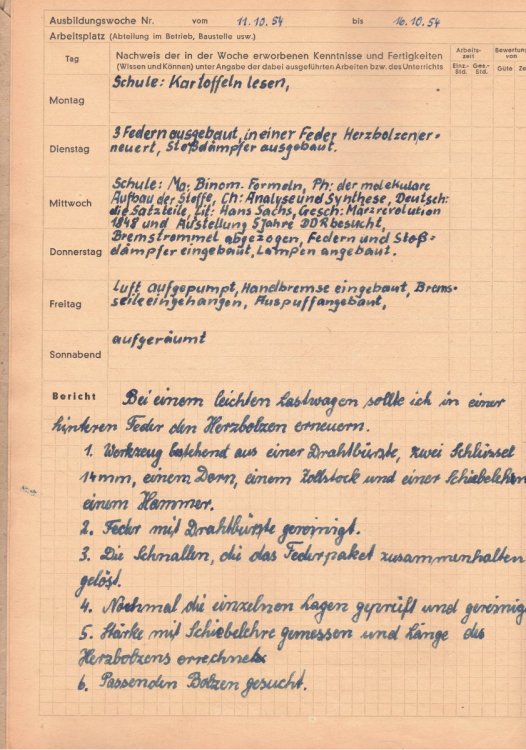 Ausbildungswoche Nr. vom 11.10.54 bis 16.10.54
Arbeitsplatz (Abteilung im Betrieb, Baustelle usw.)
Tag
Nachweis der in der Woche erworbenen Kenntnisse und Fertigkeiten
(Wissen und Können) unter Angabe der dabei ausgeführten Arbeiten bzw. des Unterrichts
Arbeits-
zeit
Einz.- Ges.-
Std. Std.
Bewertung
von
Güte
Montag
Schule: Kartoffeln lesen,
Dienstag
3 Federn ausgebaut, in einer Feder Herzbolzen er-
neuert, Stoßdämpfer ausgebaut.
Mittwoch
Schule: Ma: Binom. Formeln, Ph: der molekulare
Aufbau der Stoffe, Ch: Analyse und Synthese, Deutsch:
die Satzteile, Lit: Hans Sachs, Gesch: Märzrevolution
1848 und Austellung 5 Jahre DDR besucht,
Donnerstag
Bremstrommel abgezogen, Federn und Stoß-
dämpfer eingebaut, Lampen angebaut.
Freitag
Luft aufgepumpt, Handbremse eingebaut, Brems-
seile eingehangen, Auspuff angebaut,
Sonnabend
aufgeräumt
Bericht
Bei einem leichten Lastwagen sollte ich in einer
hinteren Feder den Herzbolzen erneuern.
1. Werkzeug bestehend aus einer Drahtbürste, zwei Schlüssel
14 mm, einem Dorn, einem Zollstock und einer
einem Hammer.
2. Feder mit Drahtbürste gereinigt.
3. Die Schnallen, die das Federpaket zusammenhalten
gelöst.
4. Nochmal die einzelnen Lagen geprüft und
5. Stärke mit Schiebelehre gemessen und Länge des
Herzbolzens errechnet
6. Passenden Bolzen gesucht.